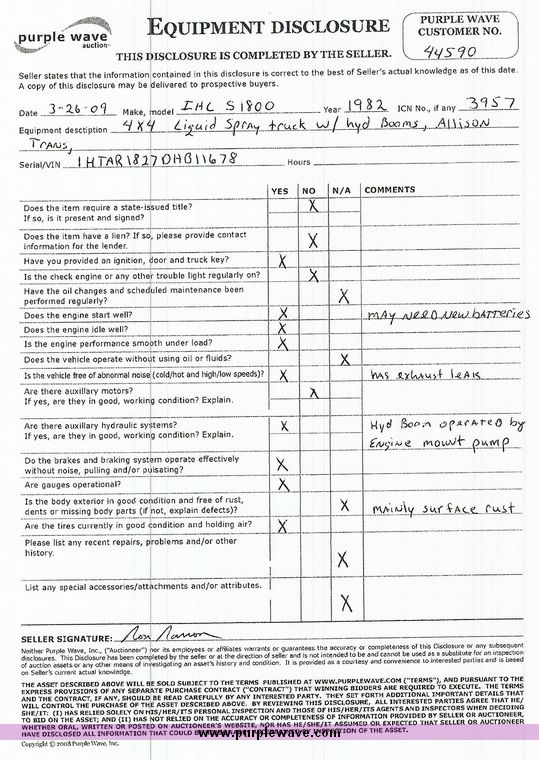 purple wave
auction
EQUIPMENT DISCLOSURE
PURPLE WAVE
CUSTOMER NO.
44590
THIS DISCLOSURE IS COMPLETED BY THE SELLER.
Seller states that the information contained in this disclosure is correct to the best of Seller's actual knowledge as of this date.
A copy of this disclosure may be delivered to prospective buyers.
Date 3-26-09 Make, model IHC S1800 Year 1982 ICN No., if any 3957
Equipment desctiption 4X4 Liquid Spray truck w/ hyd Booms, Allison
Trans,
Serial/VIN 1HTAR1827DHB11678 Hours
YES NO N/A COMMENTS
Does the item require a state-issued title? X
If so, is it present and signed?
Does the item have a lien? If so, please provide contact
information for the lender. X
Have you provided an ignition, door and truck key? X
Is the check engine or any other trouble light regularly on? X
Have the oil changes and scheduled maintenance been
performed regularly? X
Does the engine start well? X MAY NEED NEW batteries
Does the engine idle well? X
Is the engine performance smooth under load? X
Does the vehicle operate without using oil or fluids? X
Is the vehicle free of abnormal noise (cold/hot and high/low speeds)? X has exhaust leak
Are there auxillary motors? X
If yes, are they in good, working condition? Explain.
Are there auxillary hydraulic systems? X Hyd Boom operated by
If yes, are they in good, working condition? Explain. Engine mount pump
Do the brakes and braking system operate effectively
without noise, pulling and/or pulsating? X
Are gauges operational? X
Is the body exterior in good condition and free of rust,
dents or missing body parts (if not, explain defects)? X MAINLY surface rust
Are the tires currently in good condition and holding air? X
Please list any recent repairs, problems and/or other
history. X
List any special accessories/attachments and/or attributes.
X
SELLER SIGNATURE:
Neither Purple Wave, Inc., ("Auctioneer") nor its employees or affiliates warrants or guarantees the accuracy or completeness of this Disclosure or any subsequent
disclosures. This Disclosure has been completed by the seller or at the direction of seller and is not intended to be and cannot be used as a substitute for an inspection
of auction assets or any other means of investigating an asset's history and condition. It is provided as a courtesy and convenience to interested parties and is based
on Seller's current actual knowledge.
THE ASSET DESCRIBED ABOVE WILL BE SOLD SUBJECT TO THE TERMS PUBLISHED AT WWW.PURPLEWAVE.COM ("TERMS"), AND PURSUANT TO THE
EXPRESS PROVISIONS OF ANY SEPARATE PURCHASE CONTRACT ("CONTRACT") THAT WINNING BIDDERS ARE REQUIRED TO EXECUTE. THE TERMS
AND THE CONTRACT, IF ANY, SHOULD BE READ CAREFULLY BY ANY INTERESTED PARTY. THEY SET FORTH ADDITIONAL IMPORTANT DETAILS THAT
WILL CONTROL THE PURCHASE OF THE ASSET DESCRIBED ABOVE. BY REVIEWING THIS DISCLOSURE, ALL INTERESTED PARTIES AGREE THAT HE/
SHE/IT: (I) HAS RELIED SOLELY ON HIS/HER/ITS PERSONAL INSPECTION AND THOSE OF HIS/HER/ITS AGENTS AND INSPECTORS WHEN DECIDING
TO BID ON THE ASSET; AND (II) HAS NOT RELIED ON THE ACCURACY OR COMPLETENESS OF INFORMATION PROVIDED BY SELLER OR AUCTIONEER,
WHETHER ORAL, WRITTEN OR POSTED ON AUCTIONEER'S WEBSITE, NOR HAS HE/SHE/IT ASSUMED OR EXPECTED THAT SELLER OR AUCTIONEER
HAVE DISCLOSED ALL INFORMATION THAT COULD BE INSPECTION OF THE ASSET.
www.purplewave.com
Copyright © 2008 Purple Wave, Inc.